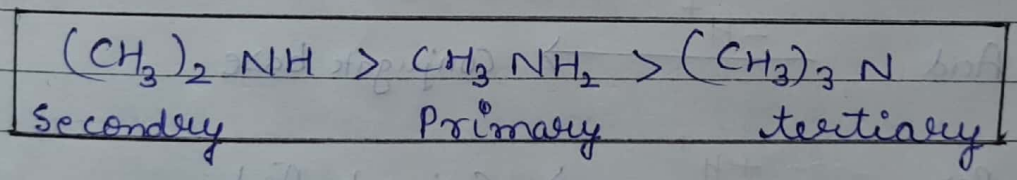 (CH₃)₂ NH > CH₃ NH₂ > (CH₃)₃ N
Secondry Primary tertiary